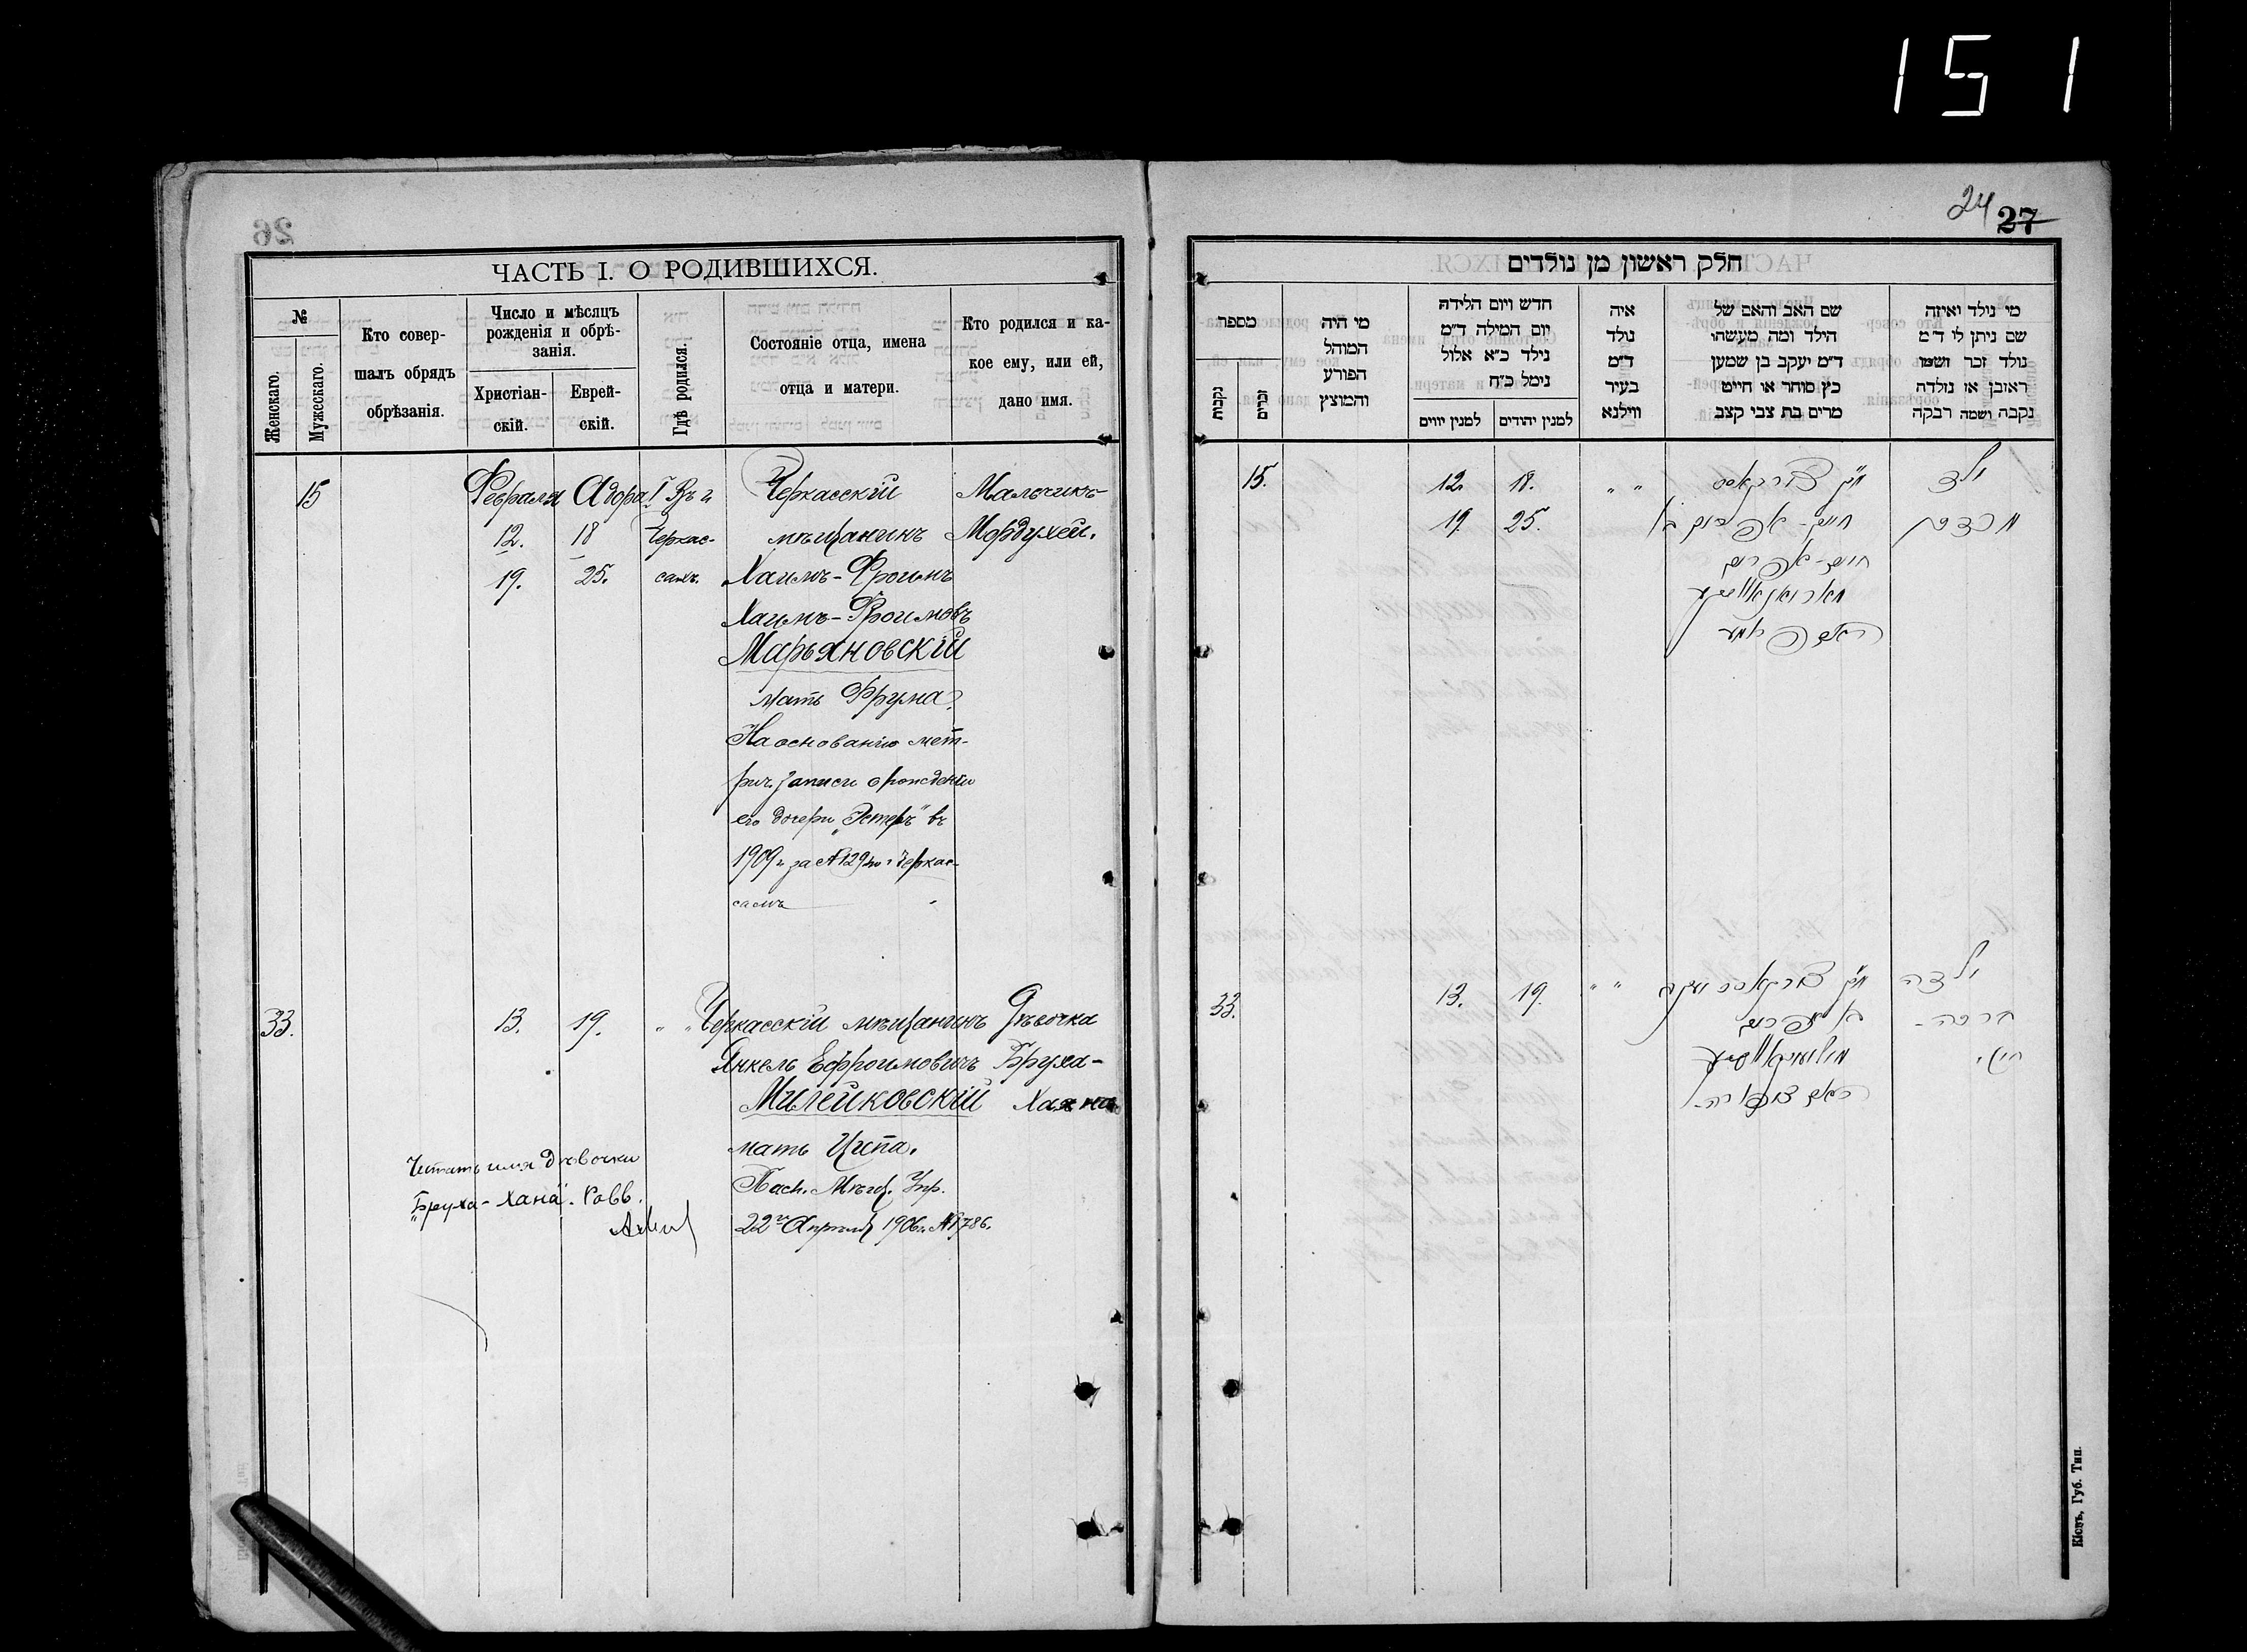 151
26
ЧАСТЬ I. О РОДИВШИХСЯ.
№
Женскаго.
Мужескаго.
Кто совер-
шалъ обрядъ
обрѣзанія.
Число и мѣсяцъ
рожденія и обрѣ-
занія.
Христіан-
скій.
Еврей-
скій.
Гдѣ родился.
Состояніе отца, имена
отца и матери.
Кто родился и ка-
кое ему, или ей,
дано имя.
15 Февраля Адора I Въ г. Черкасскій Мальчикъ
12. 18 Черкас- мѣщанинъ Мордухей.
19. 25. сахъ. Хаимъ-Фроимъ
Хаимъ-Фроимовъ
Марьяновскій
мать Фрума.
На основаніи мет-
рич. записи о рожденіи
его дочери „Эстеръ" въ
1909 г. за №129 по г. Черкас-
самъ
33. 13. 19. " " Черкасскій мѣщанинъ Дѣвочка
Янкель Ефроимовичъ Бруха-
Милейковскій
мать Ципа.
Пасп. Мѣщ. Упр.
22го Апрѣля 1906 г. №786.
Читать имя дѣвочки
„Бруха-Хана". Равв.
24 27
חלק ראשון מן נולדים
מספר
נקבות
זכרים
מי היה
המוהל
הפורע
והמוצץ
חדש ויום הלידה
יום המילה ד״מ
נילד כ״א אלול
נימל כ״ח
למנין יווים
למנין יהודים
איה
נולד
ד״מ
בעיר
ווילנא
שם האב והאם של
הילד ומה מעשהו
ד״מ יעקב בן שמען
כץ סוחר או חייט
מרים בת צבי קצב
מי נולד ואיזה
שם ניתן לו ד״מ
נולד זכר ושמו
ראובן או נולדה
נקבה ושמה רבקה
15. 12. 18. " " ילד
19. 25. מרדכי
חיים-אפרים
33. 13. 19. " " ילדה
ברכה-
Кіевъ, Губ. Тип.